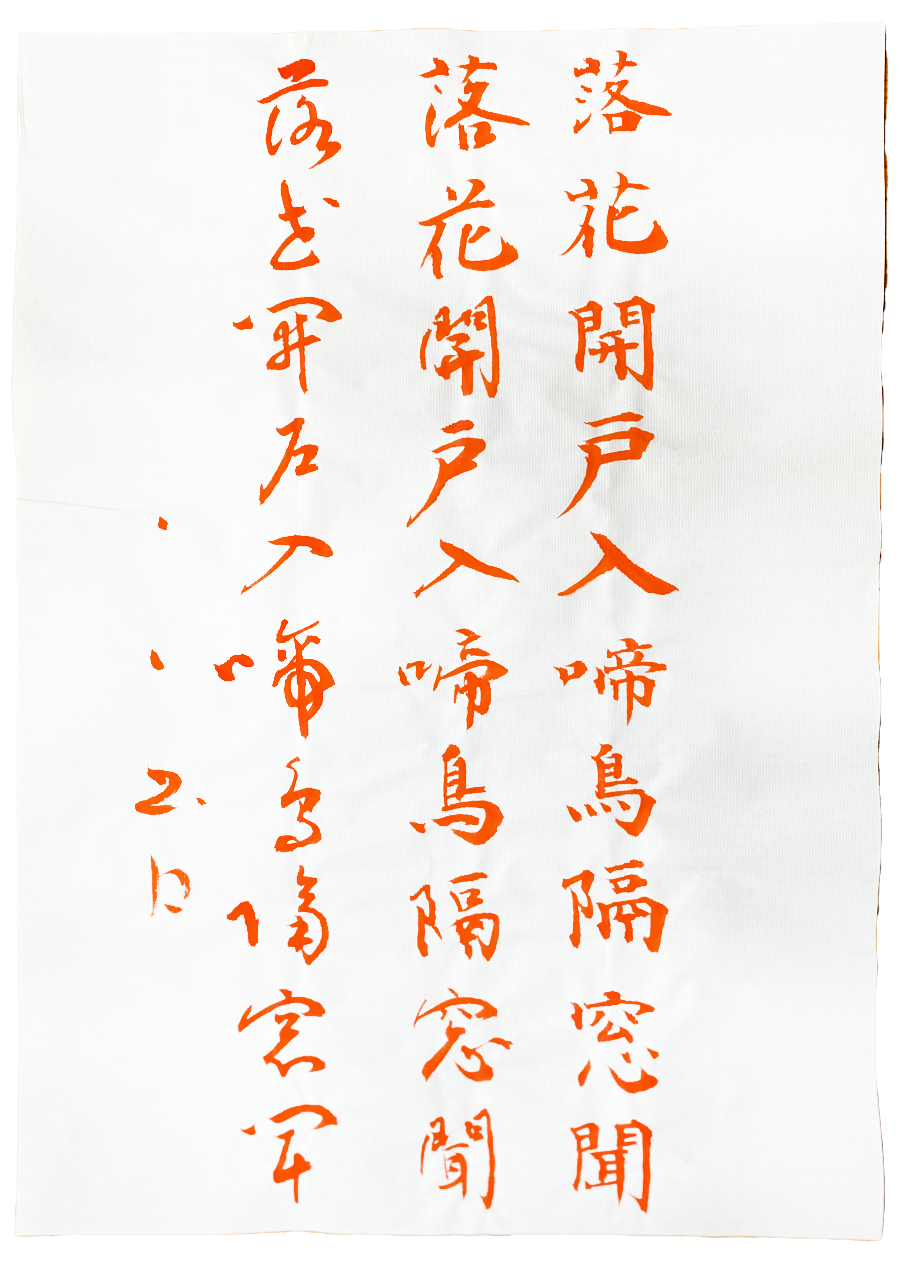 落花開戸入啼鳥隔窓聞
落花開戸入啼鳥隔窓聞
落花開戸入啼鳥隔窓聞